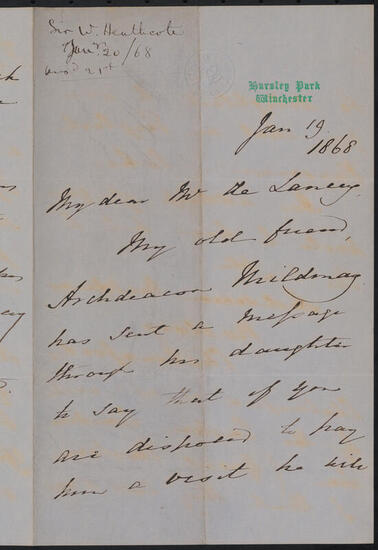 Sir W. Heathcote
Jany. 20/68
ansd. 21st
Hursley Park
Winchester
Jan 19.
1868
My dear Mr de Lancey.
My old friend,
Archdeacon Mildmay.
has sent a message
through his daughter
to say that if you
are disposed to pay
him a visit he will